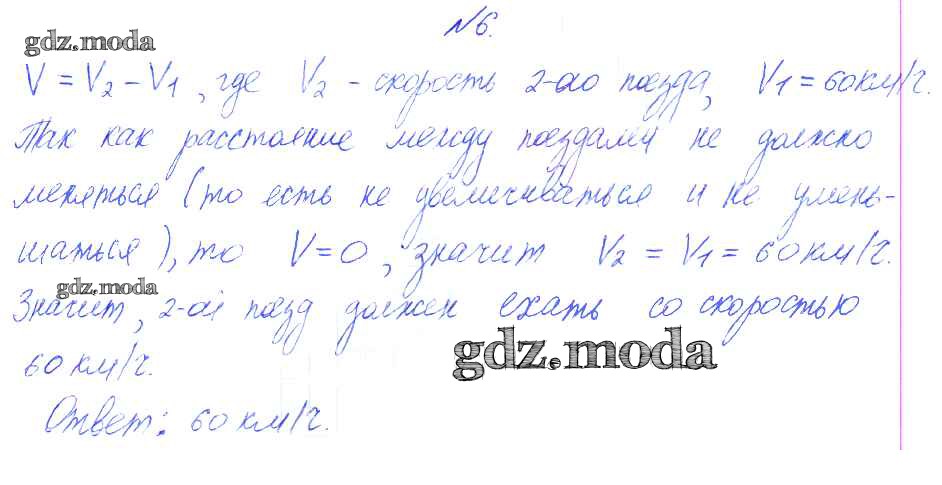 №6.
gdz.moda
V = V₂ – V₁, где V₂ - скорость 2-ого поезда, V₁ = 60 км/ч.
Так как расстояние между поездами не должно
меняться (то есть не увеличиваться и не умень-
шаться), то V = 0, значит V₂ = V₁ = 60 км/ч.
gdz.moda
Значит, 2-ой поезд должен ехать со скоростью
gdz.moda
60 км/ч.
Ответ: 60 км/ч.